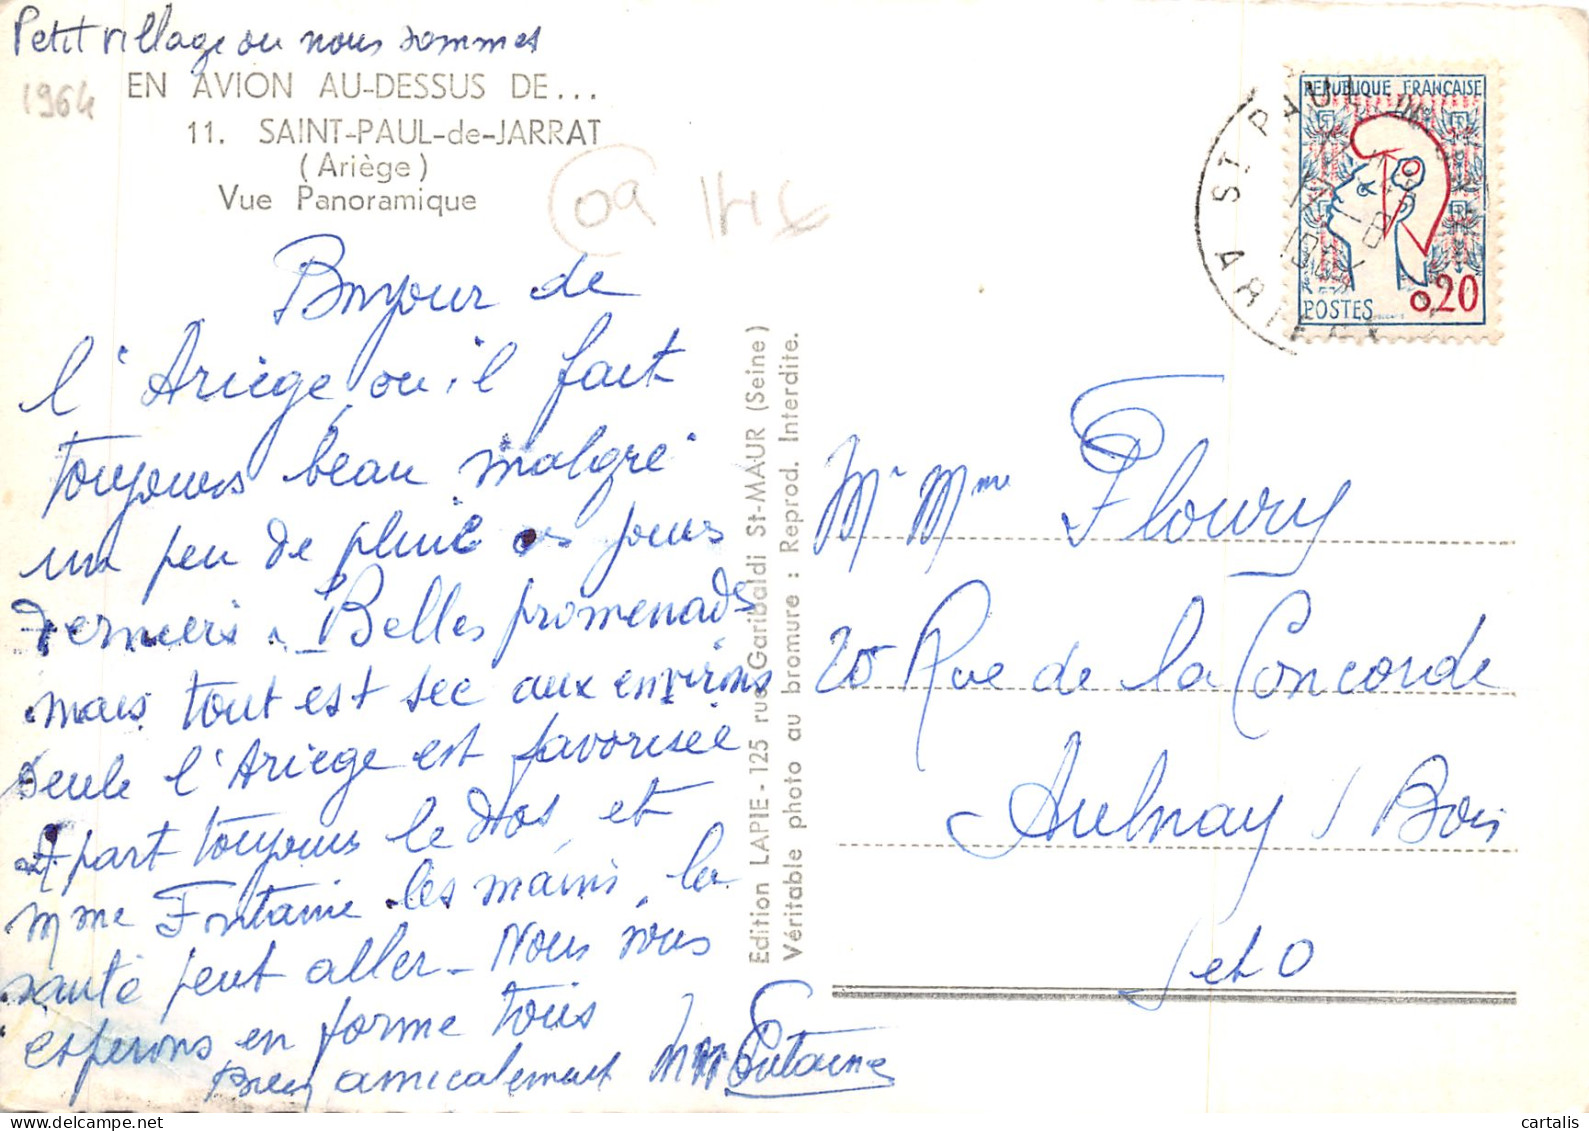 Petit village ou nous sommes
1964
EN AVION AU-DESSUS DE...
11. SAINT-PAUL-de-JARRAT
(Ariège)
Vue Panoramique
09 14€
Bonjour de
l'Ariège, ou il fait
toujours beau malgré
un peu de pluie ces jours
derniers. Belles promenades
mais tout est sec aux environs
seule l'Ariège est favorisée
A part toujours le dos, et
Mme Fontaine les mains, la
santé peut aller - Nous vous
esperons en forme tous
Bien amicalement
Fontaine
Edition LAPIE - 125 rue Garibaldi St-MAUR (Seine)
Véritable photo au bromure : Reprod. Interdite.
ST PAUL
ARIEGE
REPUBLIQUE FRANÇAISE
POSTES
0,20
Mr Mme Floury
20 Rue de la Concorde
Aulnay / Bois
S et O
cartalis
www.delcampe.net